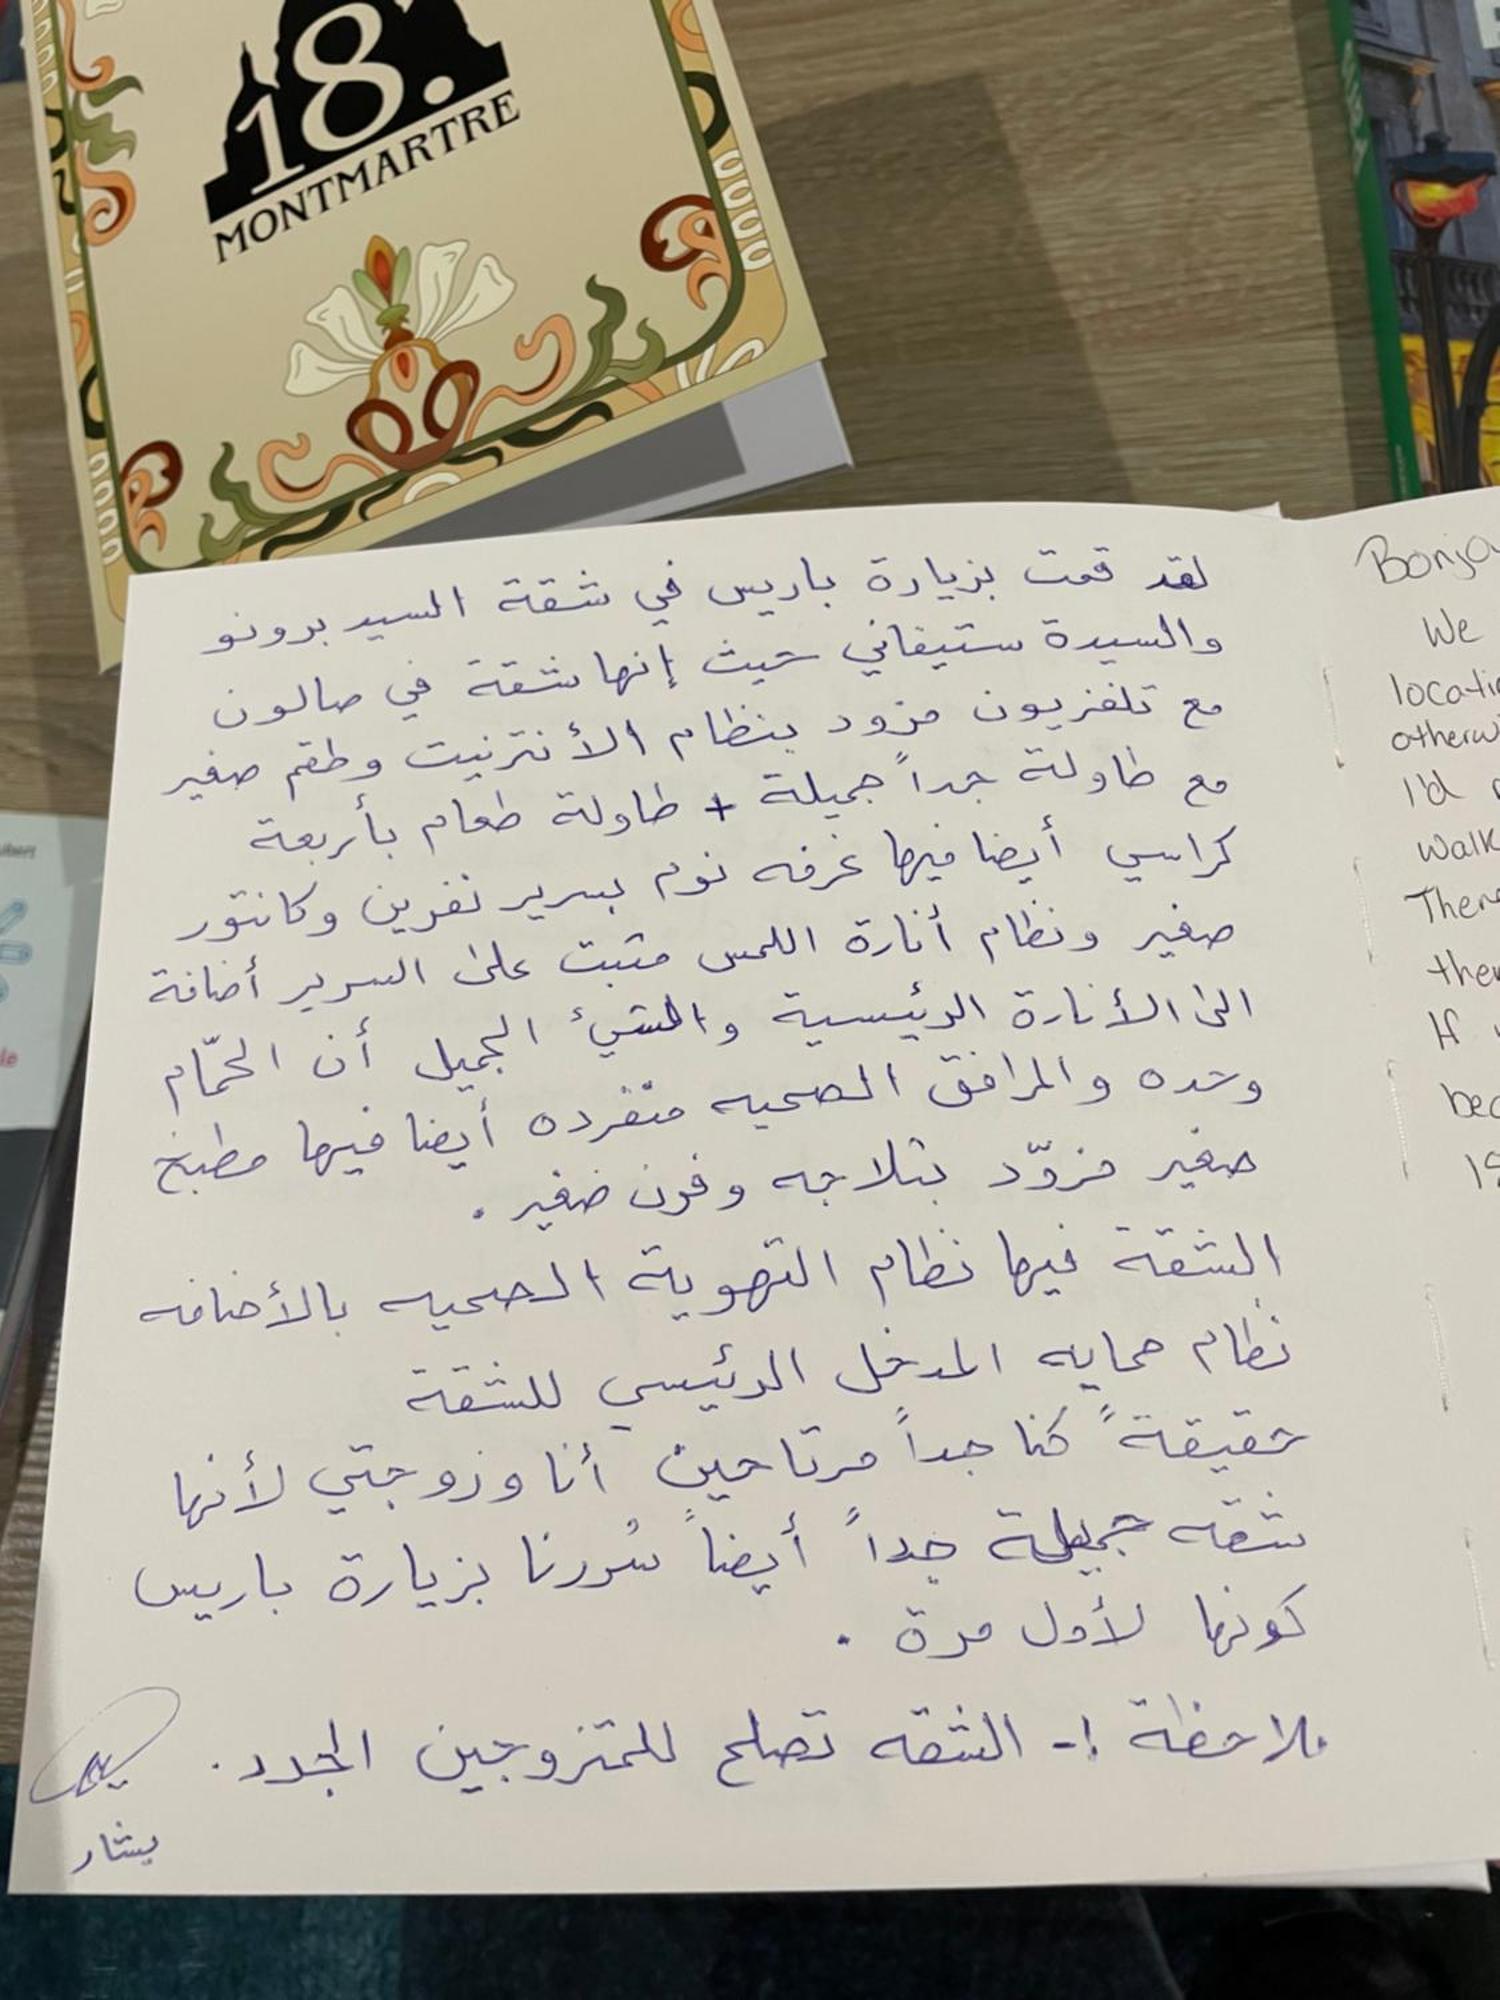 18.
MONTMARTRE
لقد قمت بزيارة باريس في شقة السيد برونو
والسيدة ستيفاني حيث إنها شقة في صالون
مع تلفزيون مزود بنظام الأنترنيت وطقم صغير
مع طاولة جداً جميلة + طاولة طعام بأربعة
كراسي أيضا فيها غرفه نوم بسرير نفرين وكانتور
صغير ونظام أنارة اللمس مثبت على السرير أضافة
الى الأنارة الرئيسية والشيء الجميل أن الحمّام
وحده والمرافق الصحيه منفرده أيضا فيها مطبخ
صغير مزوّد بثلاجه وفرن صغير .
الشقة فيها نظام التهوية الصحيه بالأضافه
نظام حمايه المدخل الرئيسي للشقة
حقيقةً كنا جداً مرتاحين أنا وزوجتي لأنها
شقه جميلة جداً أيضاً سُررنا بزيارة باريس
كونها لأول مرة .
ملاحظة :- الشقه تصلح للمتزوجين الجدد .
بشار
We
Walk
If